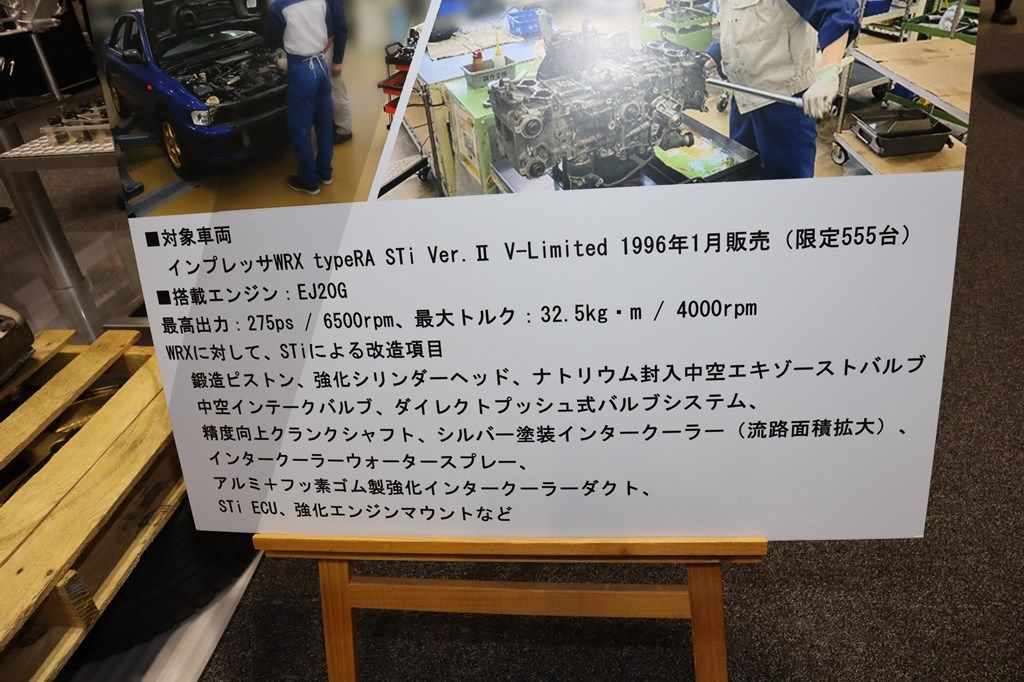 ■対象車両
インプレッサWRX typeRA STi Ver.Ⅱ V-Limited 1996年1月販売（限定555台）
■搭載エンジン：EJ20G
最高出力：275ps / 6500rpm、最大トルク：32.5kg・m / 4000rpm
WRXに対して、STiによる改造項目
鍛造ピストン、強化シリンダーヘッド、ナトリウム封入中空エキゾーストバルブ
中空インテークバルブ、ダイレクトプッシュ式バルブシステム、
精度向上クランクシャフト、シルバー塗装インタークーラー（流路面積拡大）、
インタークーラーウォータースプレー、
アルミ＋フッ素ゴム製強化インタークーラーダクト、
STi ECU、強化エンジンマウントなど